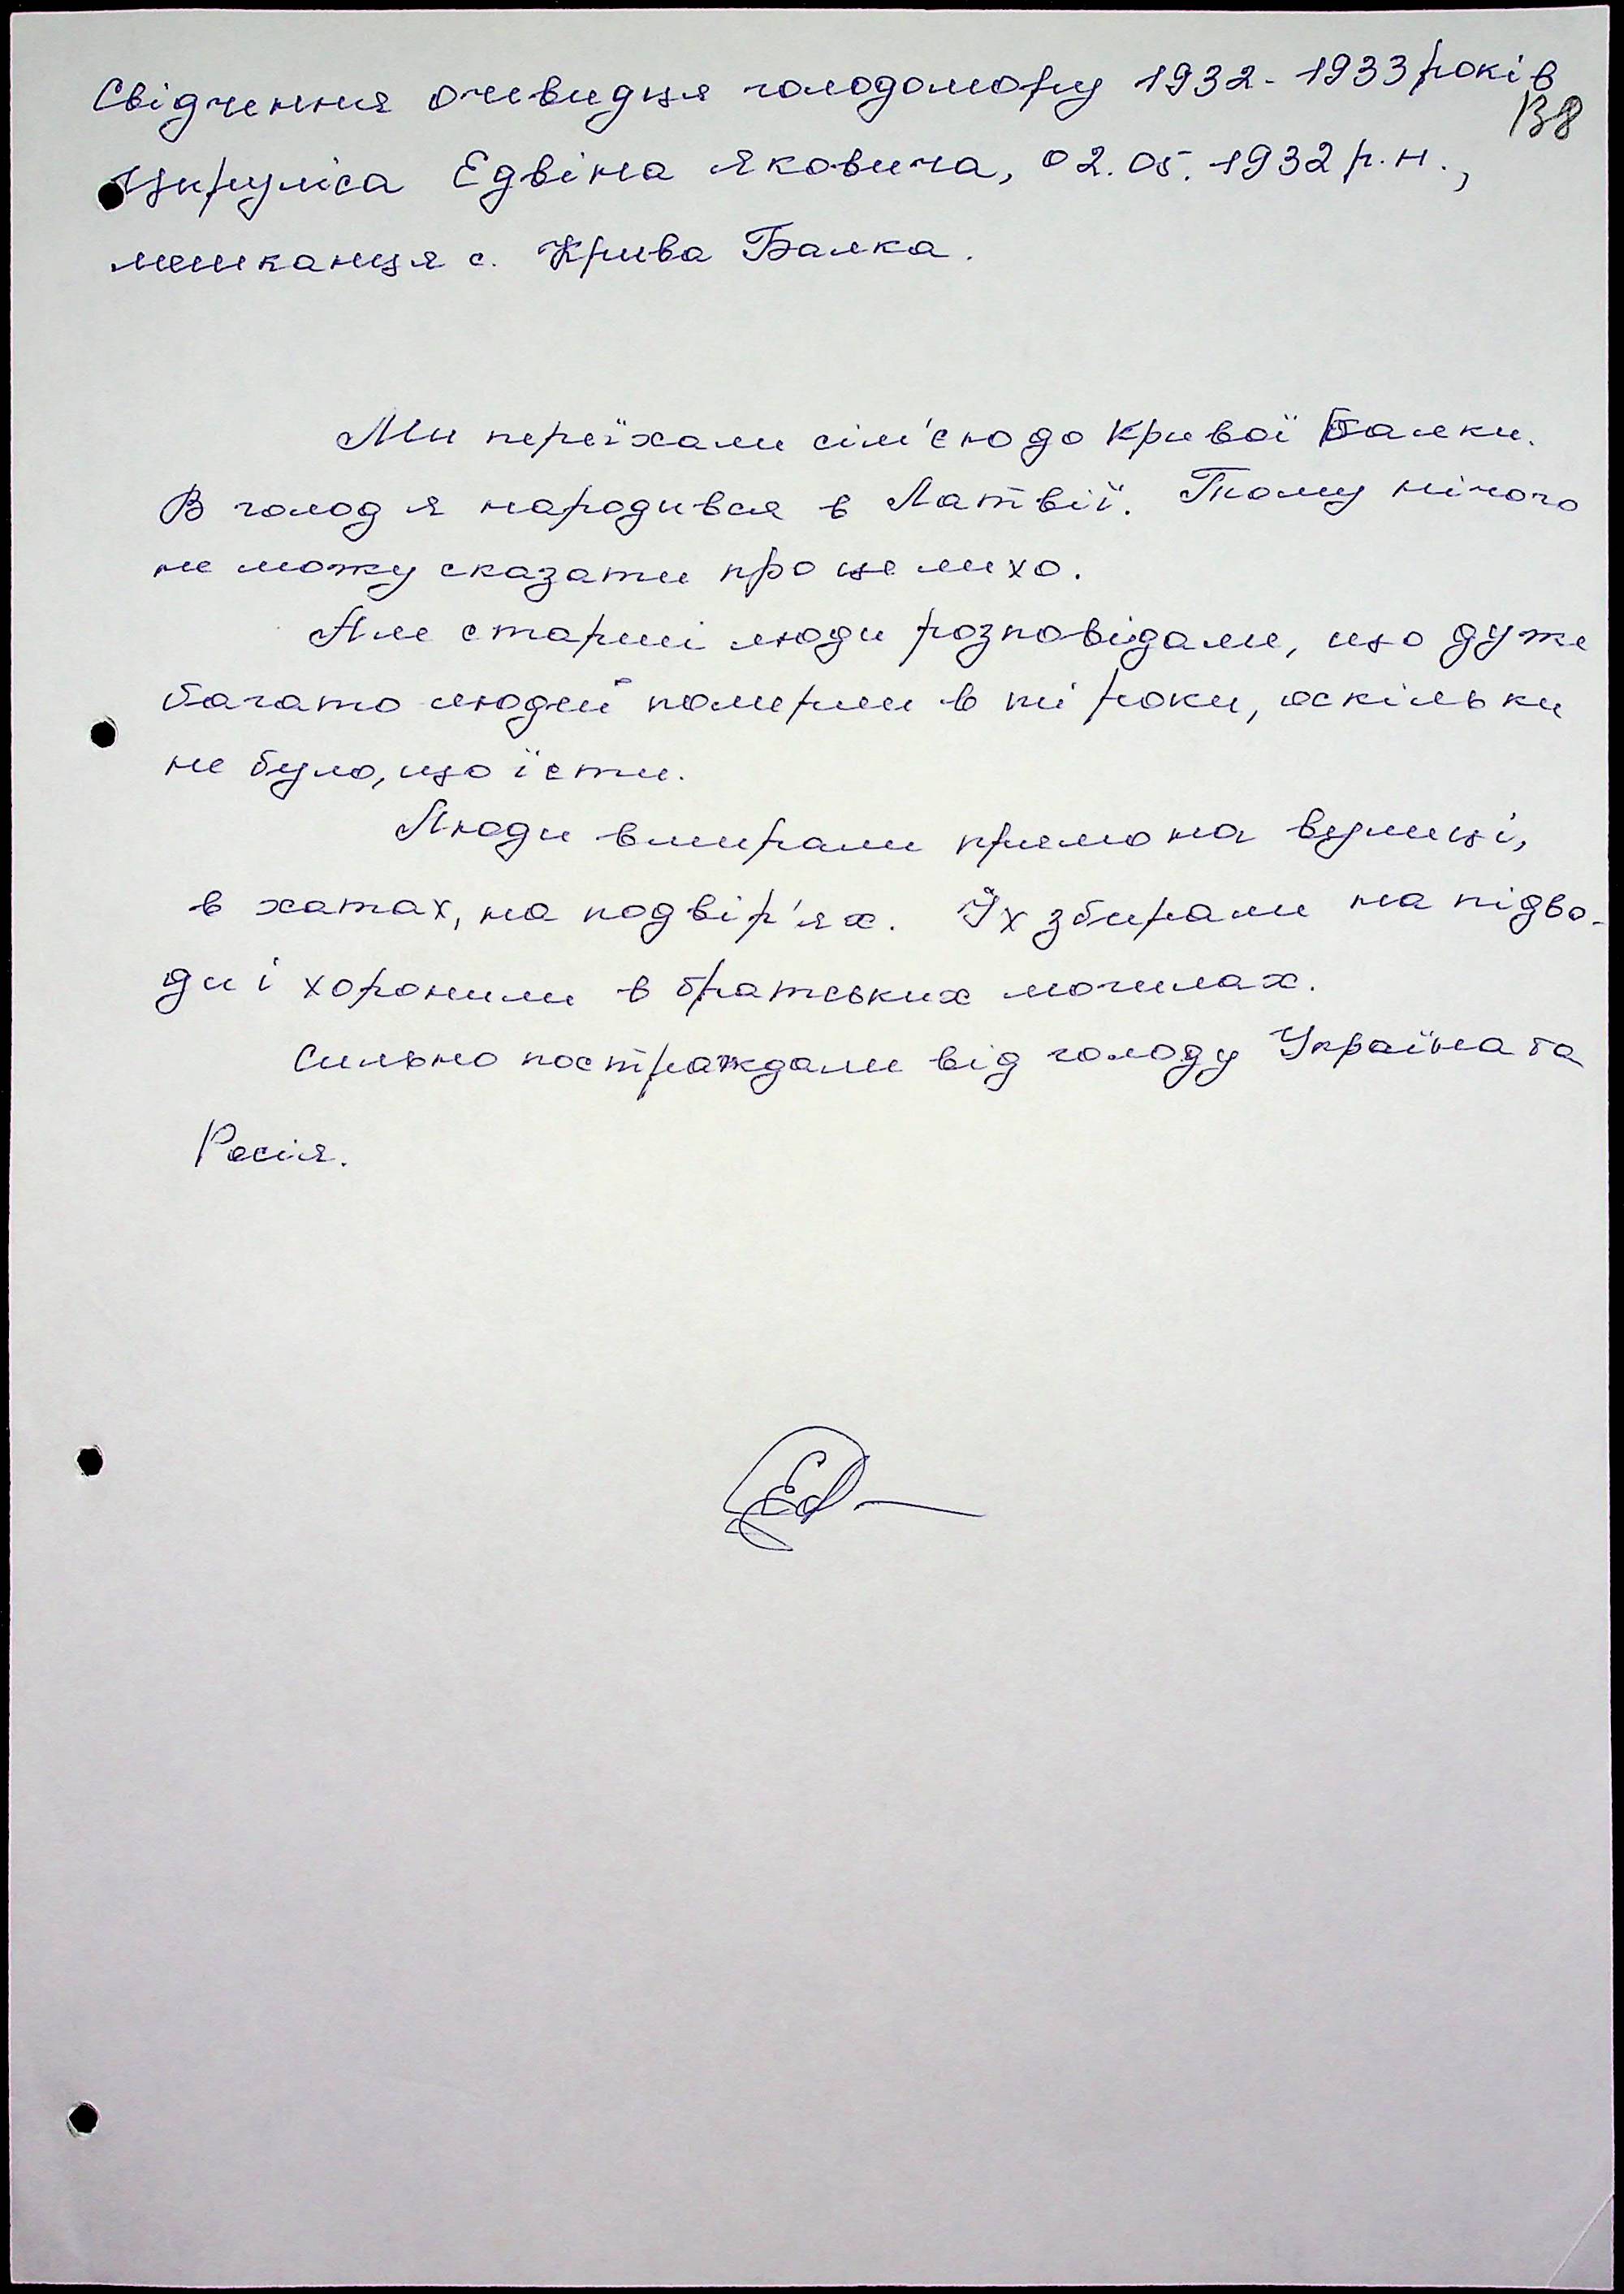 Свідчення очевидця голодомору 1932-1933 років
138
Цируліса Едвіна Яковича, 02.05.1932 р.н.,
мешканця с. Крива Балка.
Ми переїхали сім'єю до Кривої Балки.
В голод я народився в Латвії. Тому нічого
не можу сказати про це лихо.
Але старші люди розповідали, що дуже
багато людей померли в ті роки, оскільки
не було, що їсти.
Люди вмирали прямо на вулиці,
в хатах, на подвір'ях. Їх збирали на підво-
ди і хоронили в братських могилах.
Сильно постраждали від голоду Україна та
Росія.